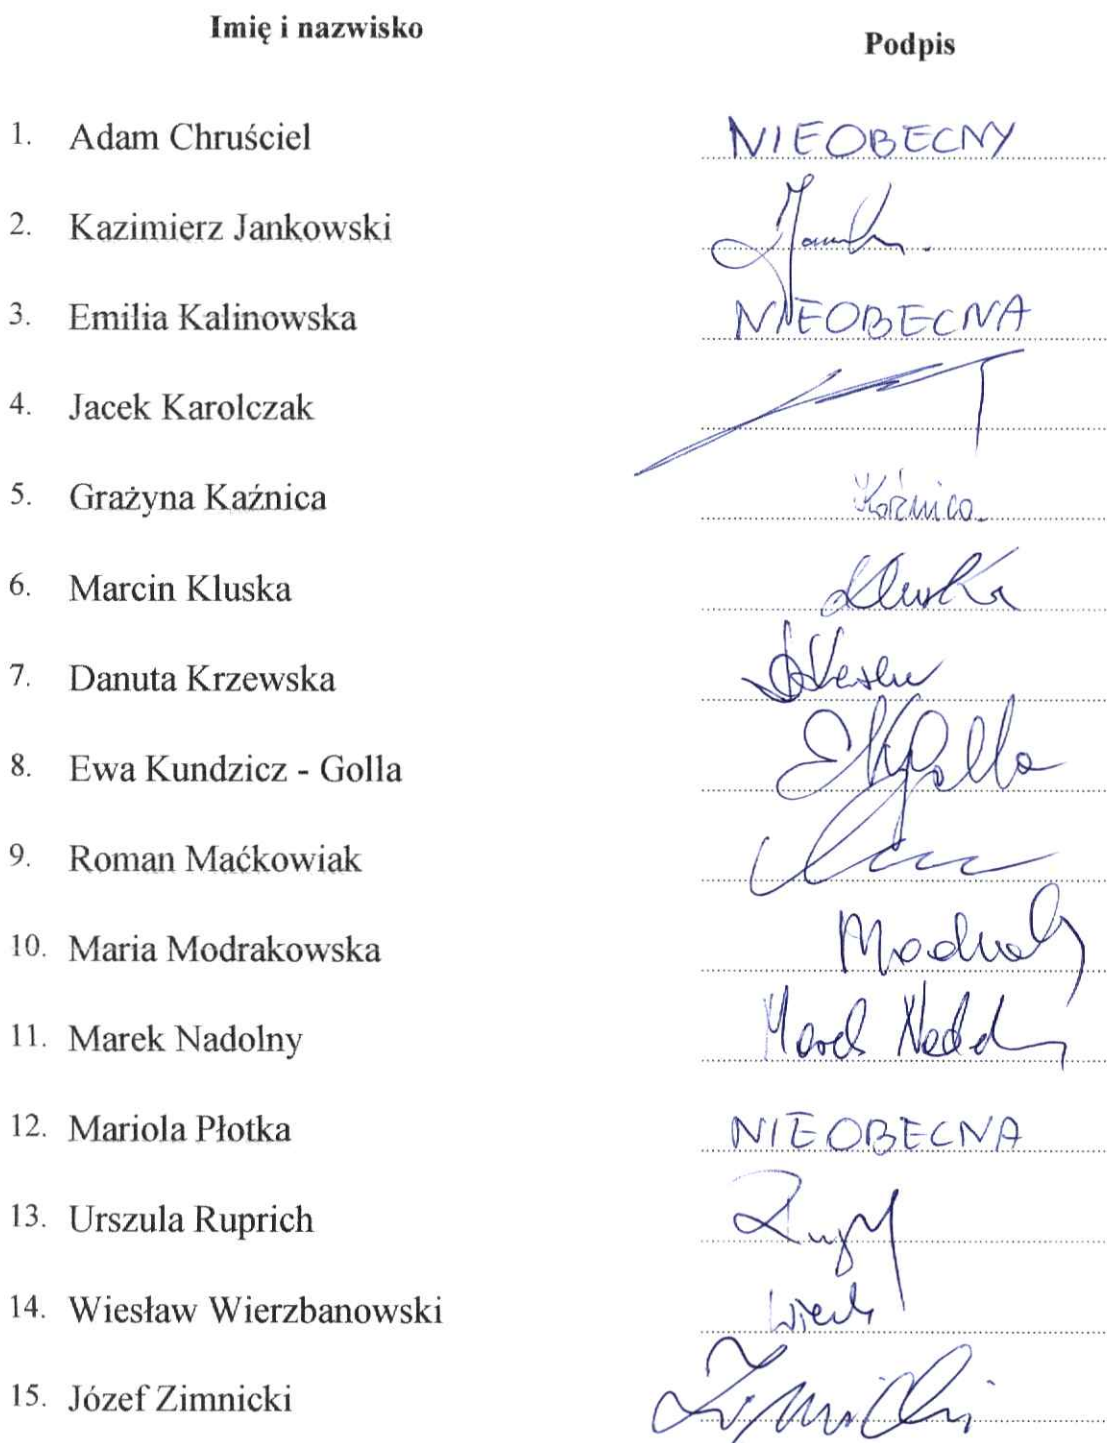 Imię i nazwisko Podpis
1. Adam Chruściel NIEOBECNY
2. Kazimierz Jankowski
3. Emilia Kalinowska NIEOBECNA
4. Jacek Karolczak
5. Grażyna Kaźnica Kaźnica
6. Marcin Kluska Kluska
7. Danuta Krzewska
8. Ewa Kundzicz - Golla EKGolla
9. Roman Maćkowiak
10. Maria Modrakowska
11. Marek Nadolny Marek
12. Mariola Płotka NIEOBECNA
13. Urszula Ruprich
14. Wiesław Wierzbanowski
15. Józef Zimnicki Zimnicki